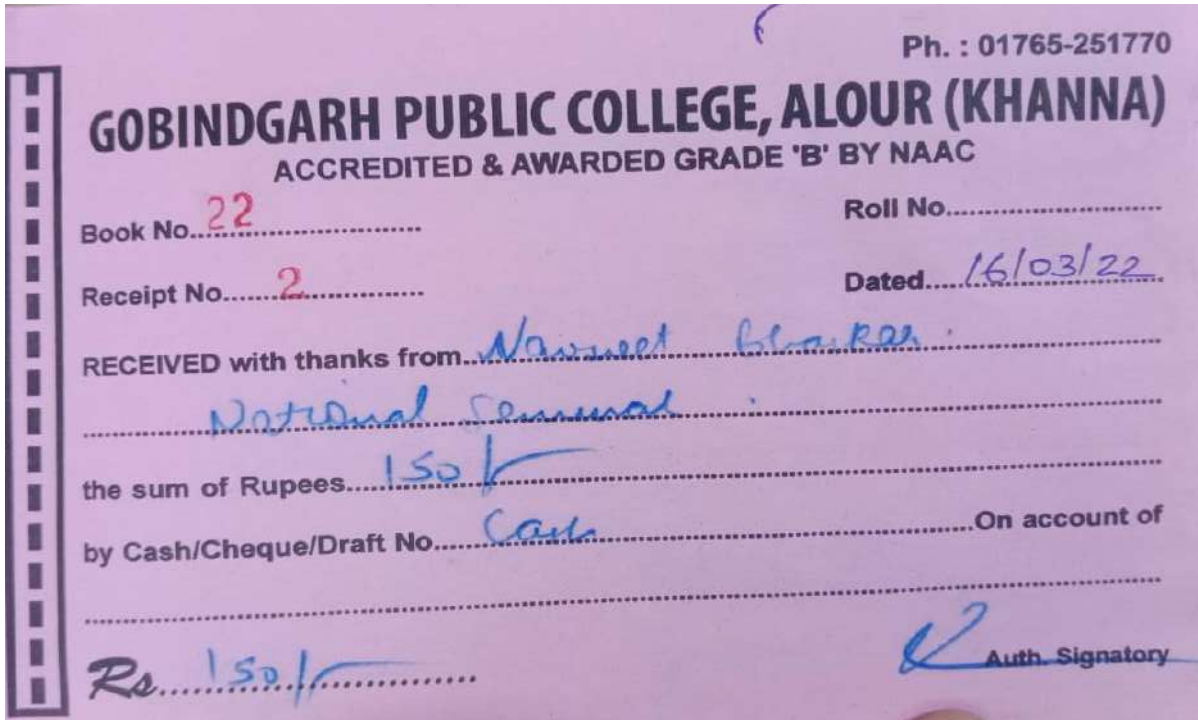 Ph. : 01765-251770
GOBINDGARH PUBLIC COLLEGE, ALOUR (KHANNA)
ACCREDITED & AWARDED GRADE 'B' BY NAAC
Book No. 22 Roll No.
Receipt No. 2 Dated 16/03/22
RECEIVED with thanks from Navneet
National Seminar
the sum of Rupees 150/-
by Cash/Cheque/Draft No. Cash On account of
Rs. 150/- Auth. Signatory